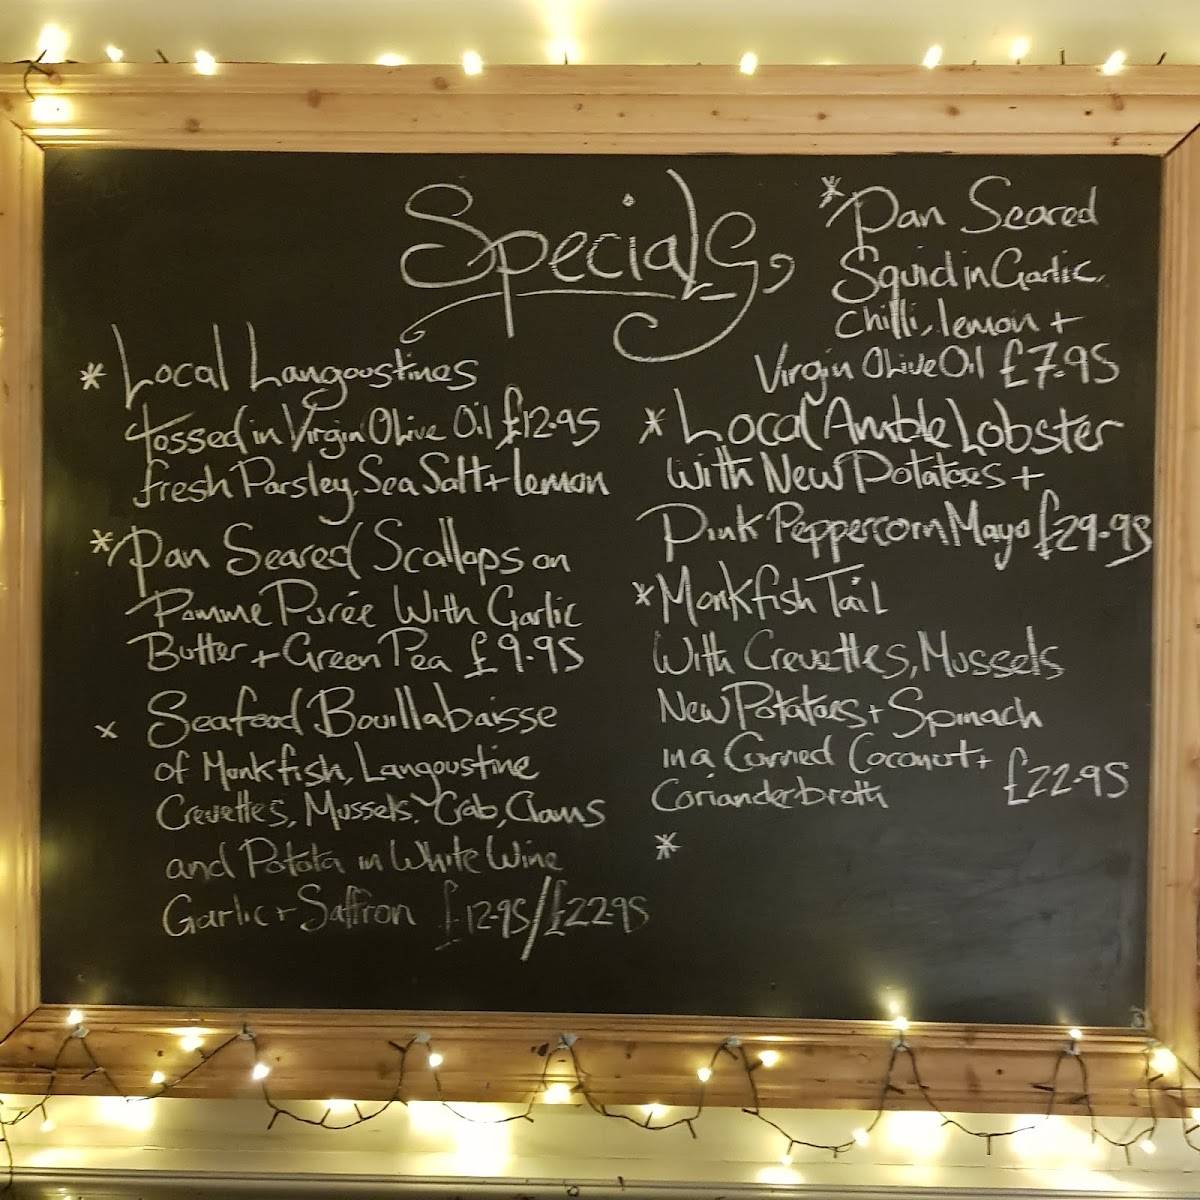 Specials
* Local Langoustines
tossed in Virgin Olive Oil £12.95
fresh Parsley, Sea Salt + lemon
* Pan Seared Scallops on
Pomme Purée With Garlic
Butter + Green Pea £9.95
x Seafood Bouillabaisse
of Monkfish, Langoustine
Crevettes, Mussels, Crab, Clams
and Potato in White Wine
Garlic + Saffron £12.95/£22.95
* Pan Seared
Squid in Garlic,
Chilli, lemon +
Virgin Olive Oil £7.95
* Local Amble Lobster
With New Potatoes +
Pink Peppercorn Mayo £29.95
* Monkfish Tail
With Crevettes, Mussels
New Potatoes + Spinach
in a Curried Coconut +
Coriander broth £22.95
*